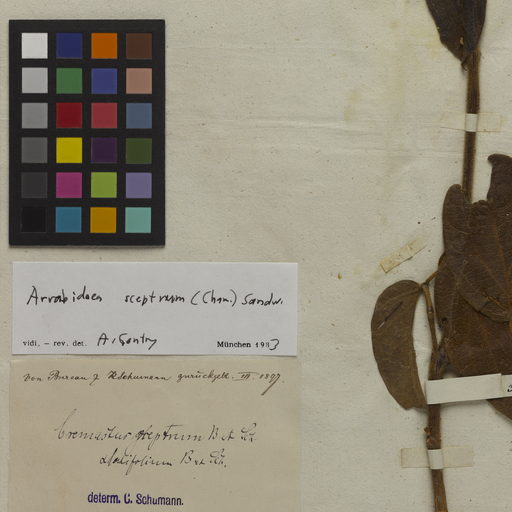 Arrabidaea sceptrum (Cham.) Sandw.
vidi, — rev. det. A. Gentry München 1983
von Bureau z. K. Schumann zurückgeb. III. 1897.
Cremastus sceptrum B et Sch.
B et Sch.
determ. C. Schumann.